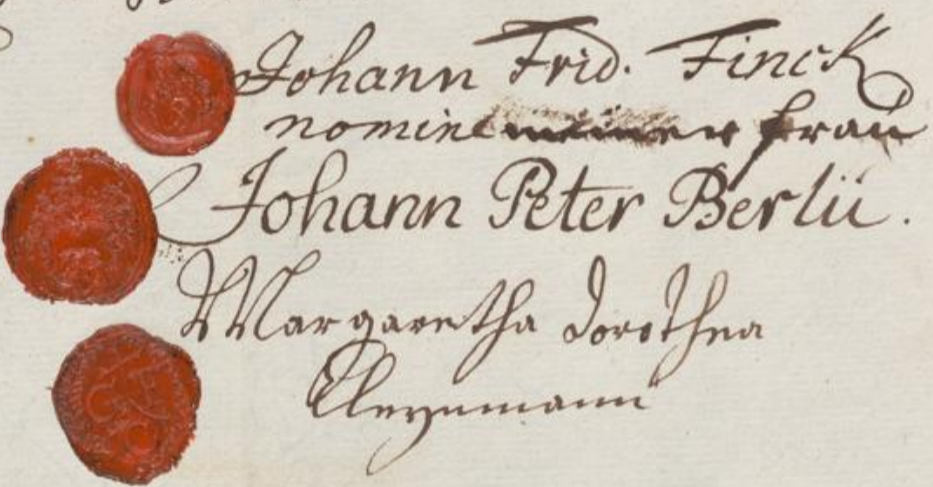 Johann Frid. Finck
nomine meiner frau
Johann Peter Berlü.
Margaretha dorothea
Cleynmann